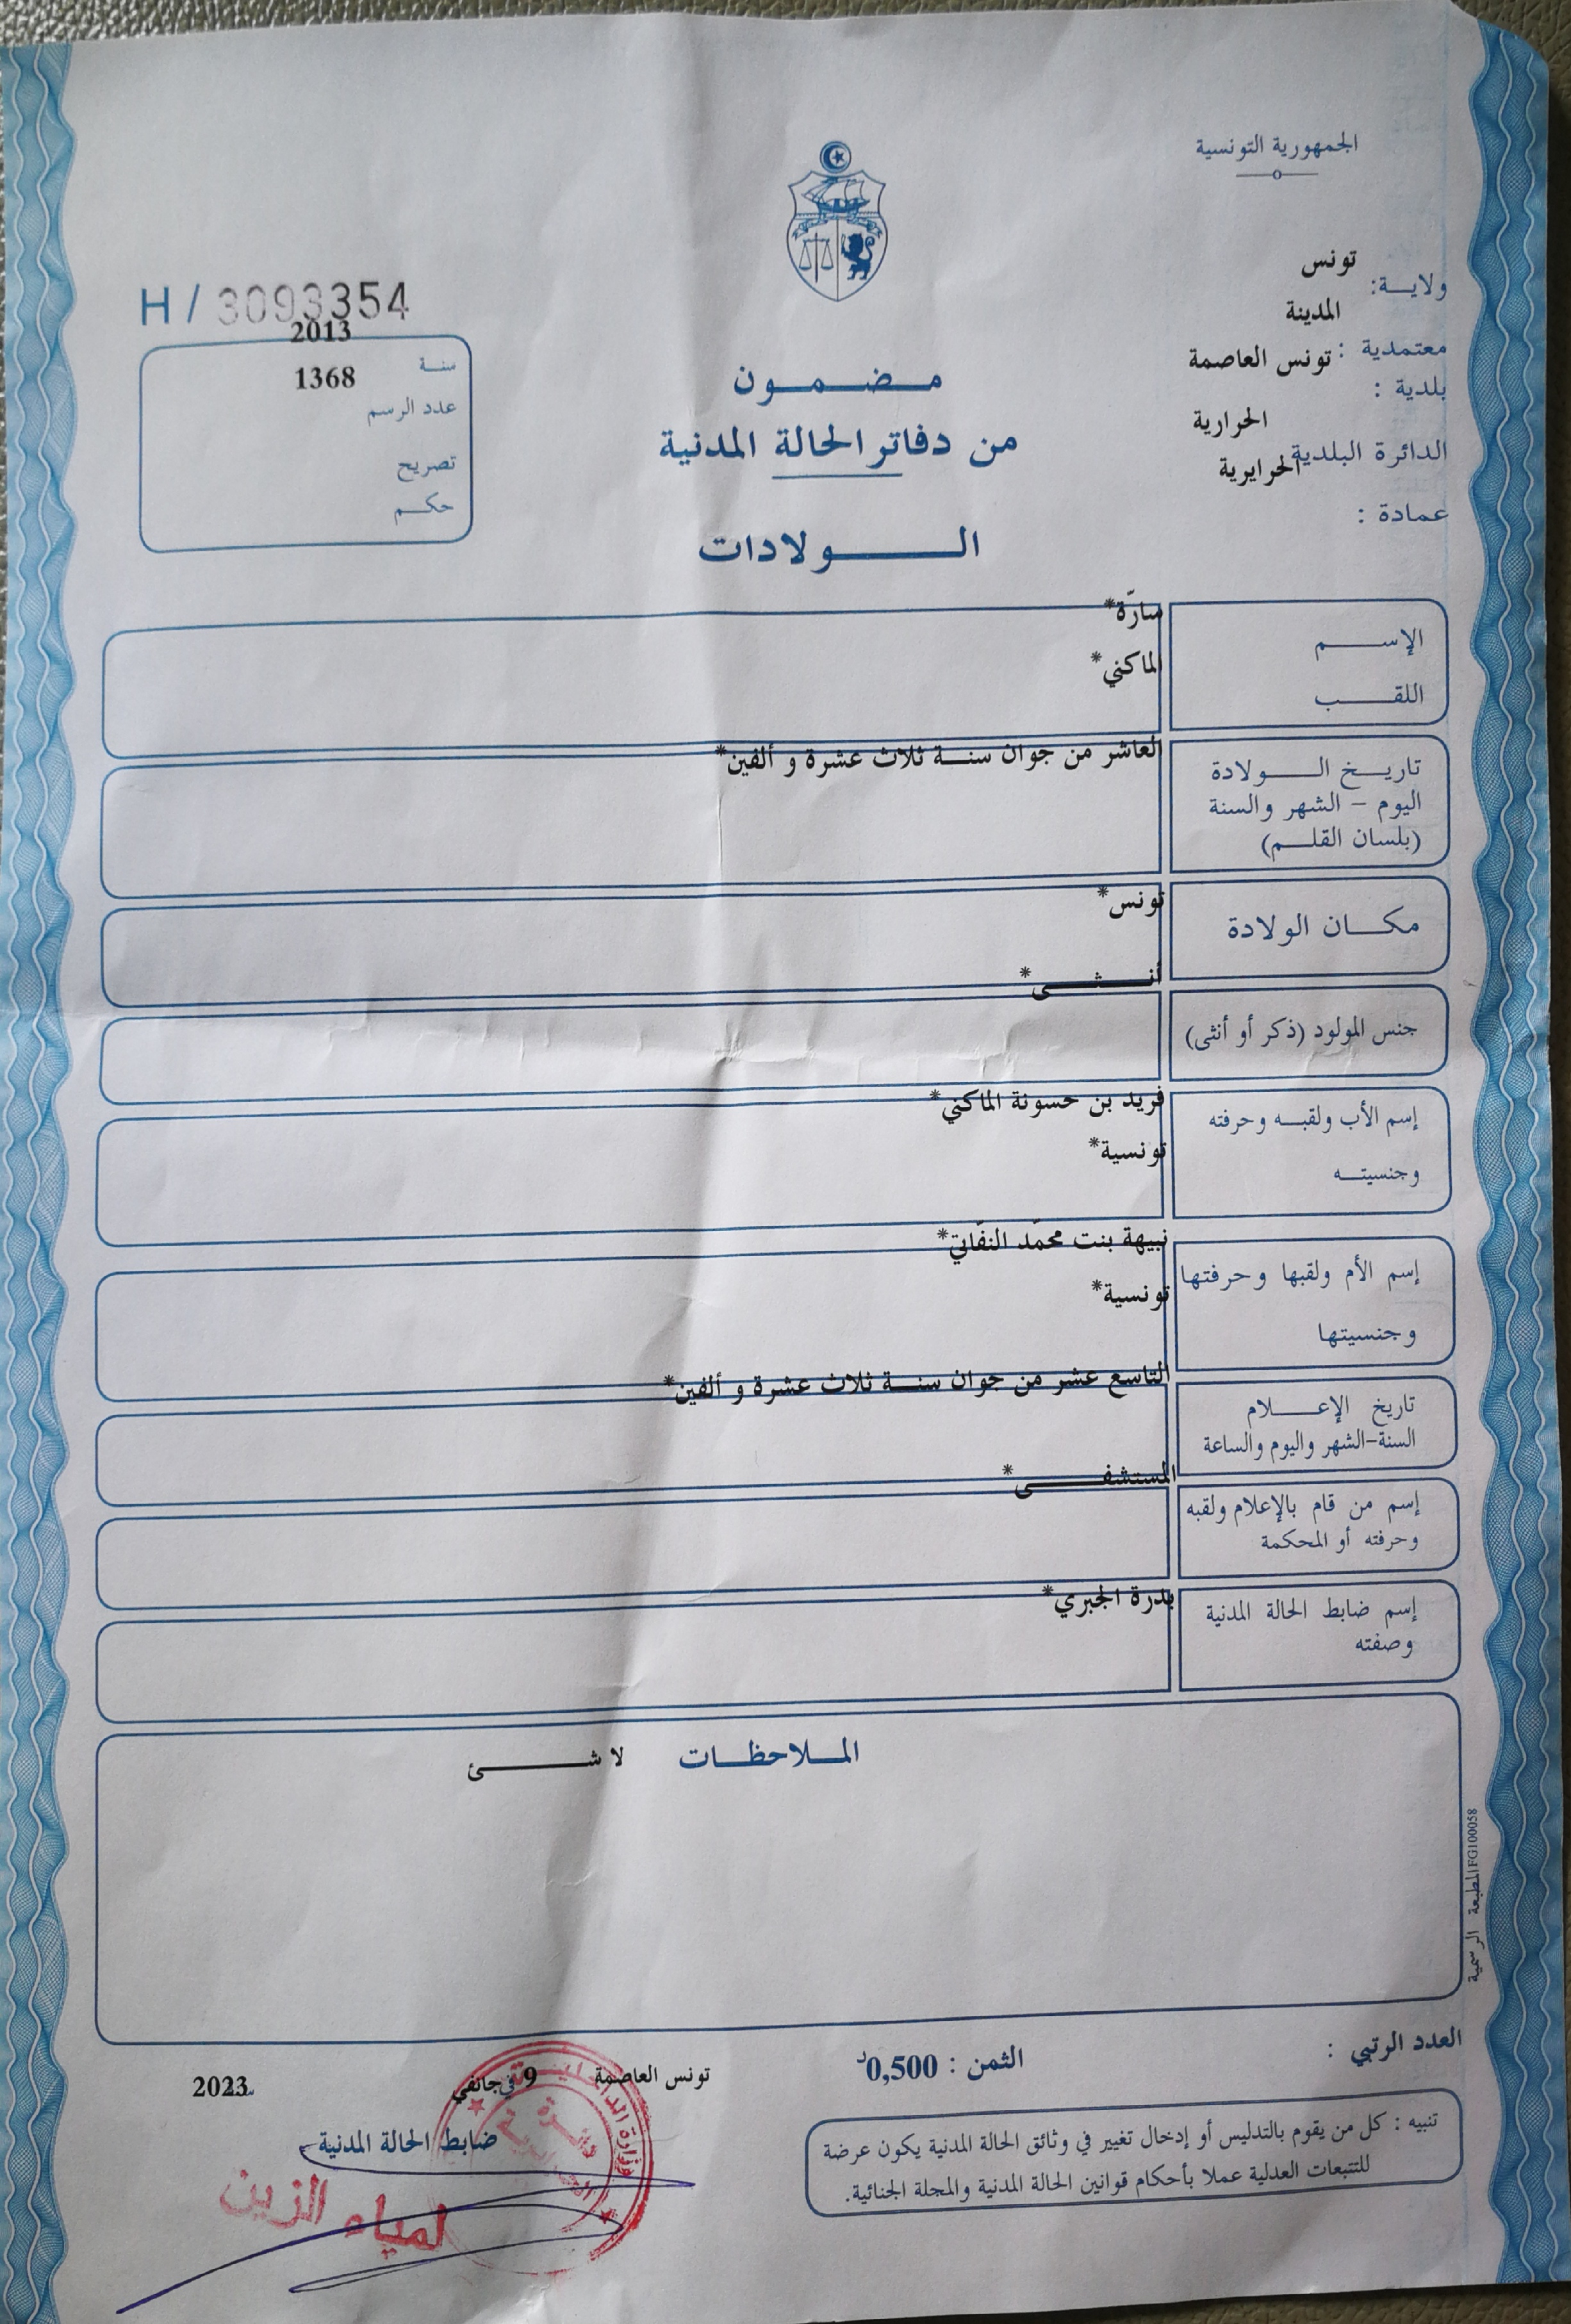 الجمهورية التونسية
ولاية: تونس
معتمدية : المدينة
بلدية : تونس العاصمة
الدائرة البلدية الحرارية
عمادة : الحرايرية
H / 3093354
سنة 2013
عدد الرسم 1368
تصريح
حكم
مضمون
من دفاتر الحالة المدنية
الولادات
الإسم سارّة*
اللقب الماكني*
تاريخ الولادة العاشر من جوان سنة ثلاث عشرة و ألفين*
اليوم - الشهر والسنة
(بلسان القلم)
مكان الولادة تونس*
جنس المولود (ذكر أو أنثى) أنثى*
إسم الأب ولقبه وحرفته فريد بن حسونة الماكني*
وجنسيته تونسية*
إسم الأم ولقبها وحرفتها نبيهة بنت محمّد النفّاتي*
وجنسيتها تونسية*
تاريخ الإعلام التاسع عشر من جوان سنة ثلاث عشرة و ألفين*
السنة-الشهر واليوم والساعة
إسم من قام بالإعلام ولقبه المستشفى*
وحرفته أو المحكمة
إسم ضابط الحالة المدنية بدرة الجبري*
وصفته
الملاحظات لا شئ
المطبعة الرسمية FG100058
العدد الرتبي :
الثمن : 0,500د
تونس العاصمة في 9 جانفي 2023
ضابط الحالة المدنية
لمياء الزين
تنبيه : كل من يقوم بالتدليس أو إدخال تغيير في وثائق الحالة المدنية يكون عرضة
للتتبعات العدلية عملا بأحكام قوانين الحالة المدنية والمجلة الجنائية.